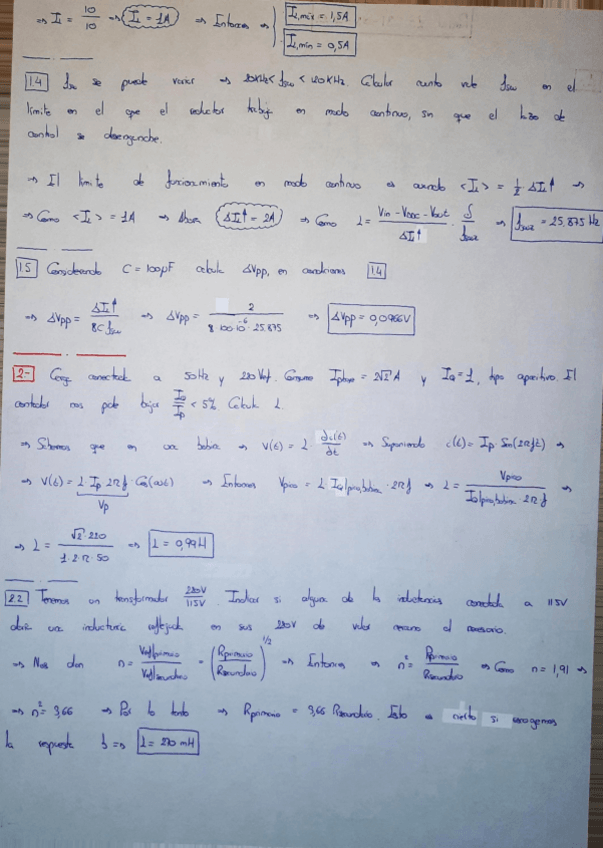 ⇒ I = 10/10 ⇒ I_L = 1A ⇒ Entonces ⇒ { I_L,máx = 1,5A
I_L,min = 0,5A
1.4 f_sw se puede variar ⇒ 20KHz < f_sw < 120KHz. Calcular cuanto vale f_sw en el
límite en el que el inductor trabaja en modo continuo, sin que el lazo de
control se desenganche.
⇒ El límite de funcionamiento en modo continuo es cuando <I_L> = 1/2 ΔI_L↑ ⇒
⇒ Como <I_L> = 1A ⇒ Ahora ΔI_L↑ = 2A ⇒ Como L = (Vin - - Vout)/ΔI_L↑ · δ/ ⇒ = 25,875 KHz
1.5 Considerando C = 100μF calcula ΔVpp, en condiciones 1.4
⇒ ΔVpp = ΔI_L↑/(8C f_sw) ⇒ ΔVpp = 2/(8·100·10^-6·25,875) ⇒ ΔVpp = 0,0966V
2- Carga conectada a 50Hz y 220Vef. Consume = 2√2 A y I_Q = 1, tipo. El
contador nos pide bajar I_Q/I_p < 5%. Calcula L.
⇒ Sabemos que en una bobina ⇒ V(t) = L · ∂i(t)/∂t ⇒ Suponiendo i(t) = Ip · Sen(2πft) ⇒
⇒ V(t) = L · Ip 2πf · Cos(ωt) ⇒ Entonces Vpico = L I_Q|pico,bobina · 2πf ⇒ L = Vpico/(I_Q|pico,bobina · 2πf) ⇒
Vp
⇒ L = √2·220/(1·2·π·50) ⇒ L = 0,99H
2.2 Tenemos un transformador 220V/115V. Indicar si alguna de las inductancias conectada a 115V
daría una inductancia reflejada en sus 220V de valor cercano al necesario.
⇒ Nos dan n = Vef|primario/Vef|secundario = (Rprimario/Rsecundario)^1/2 ⇒ Entonces ⇒ n² = Rprimario/Rsecundario ⇒ Como n = 1,91 ⇒
⇒ n² = 3,66 ⇒ Por lo tanto ⇒ Rprimario = 3,66 Rsecundario. Esto es cierto si escogemos
la respuesta b ⇒ L = 270 mH